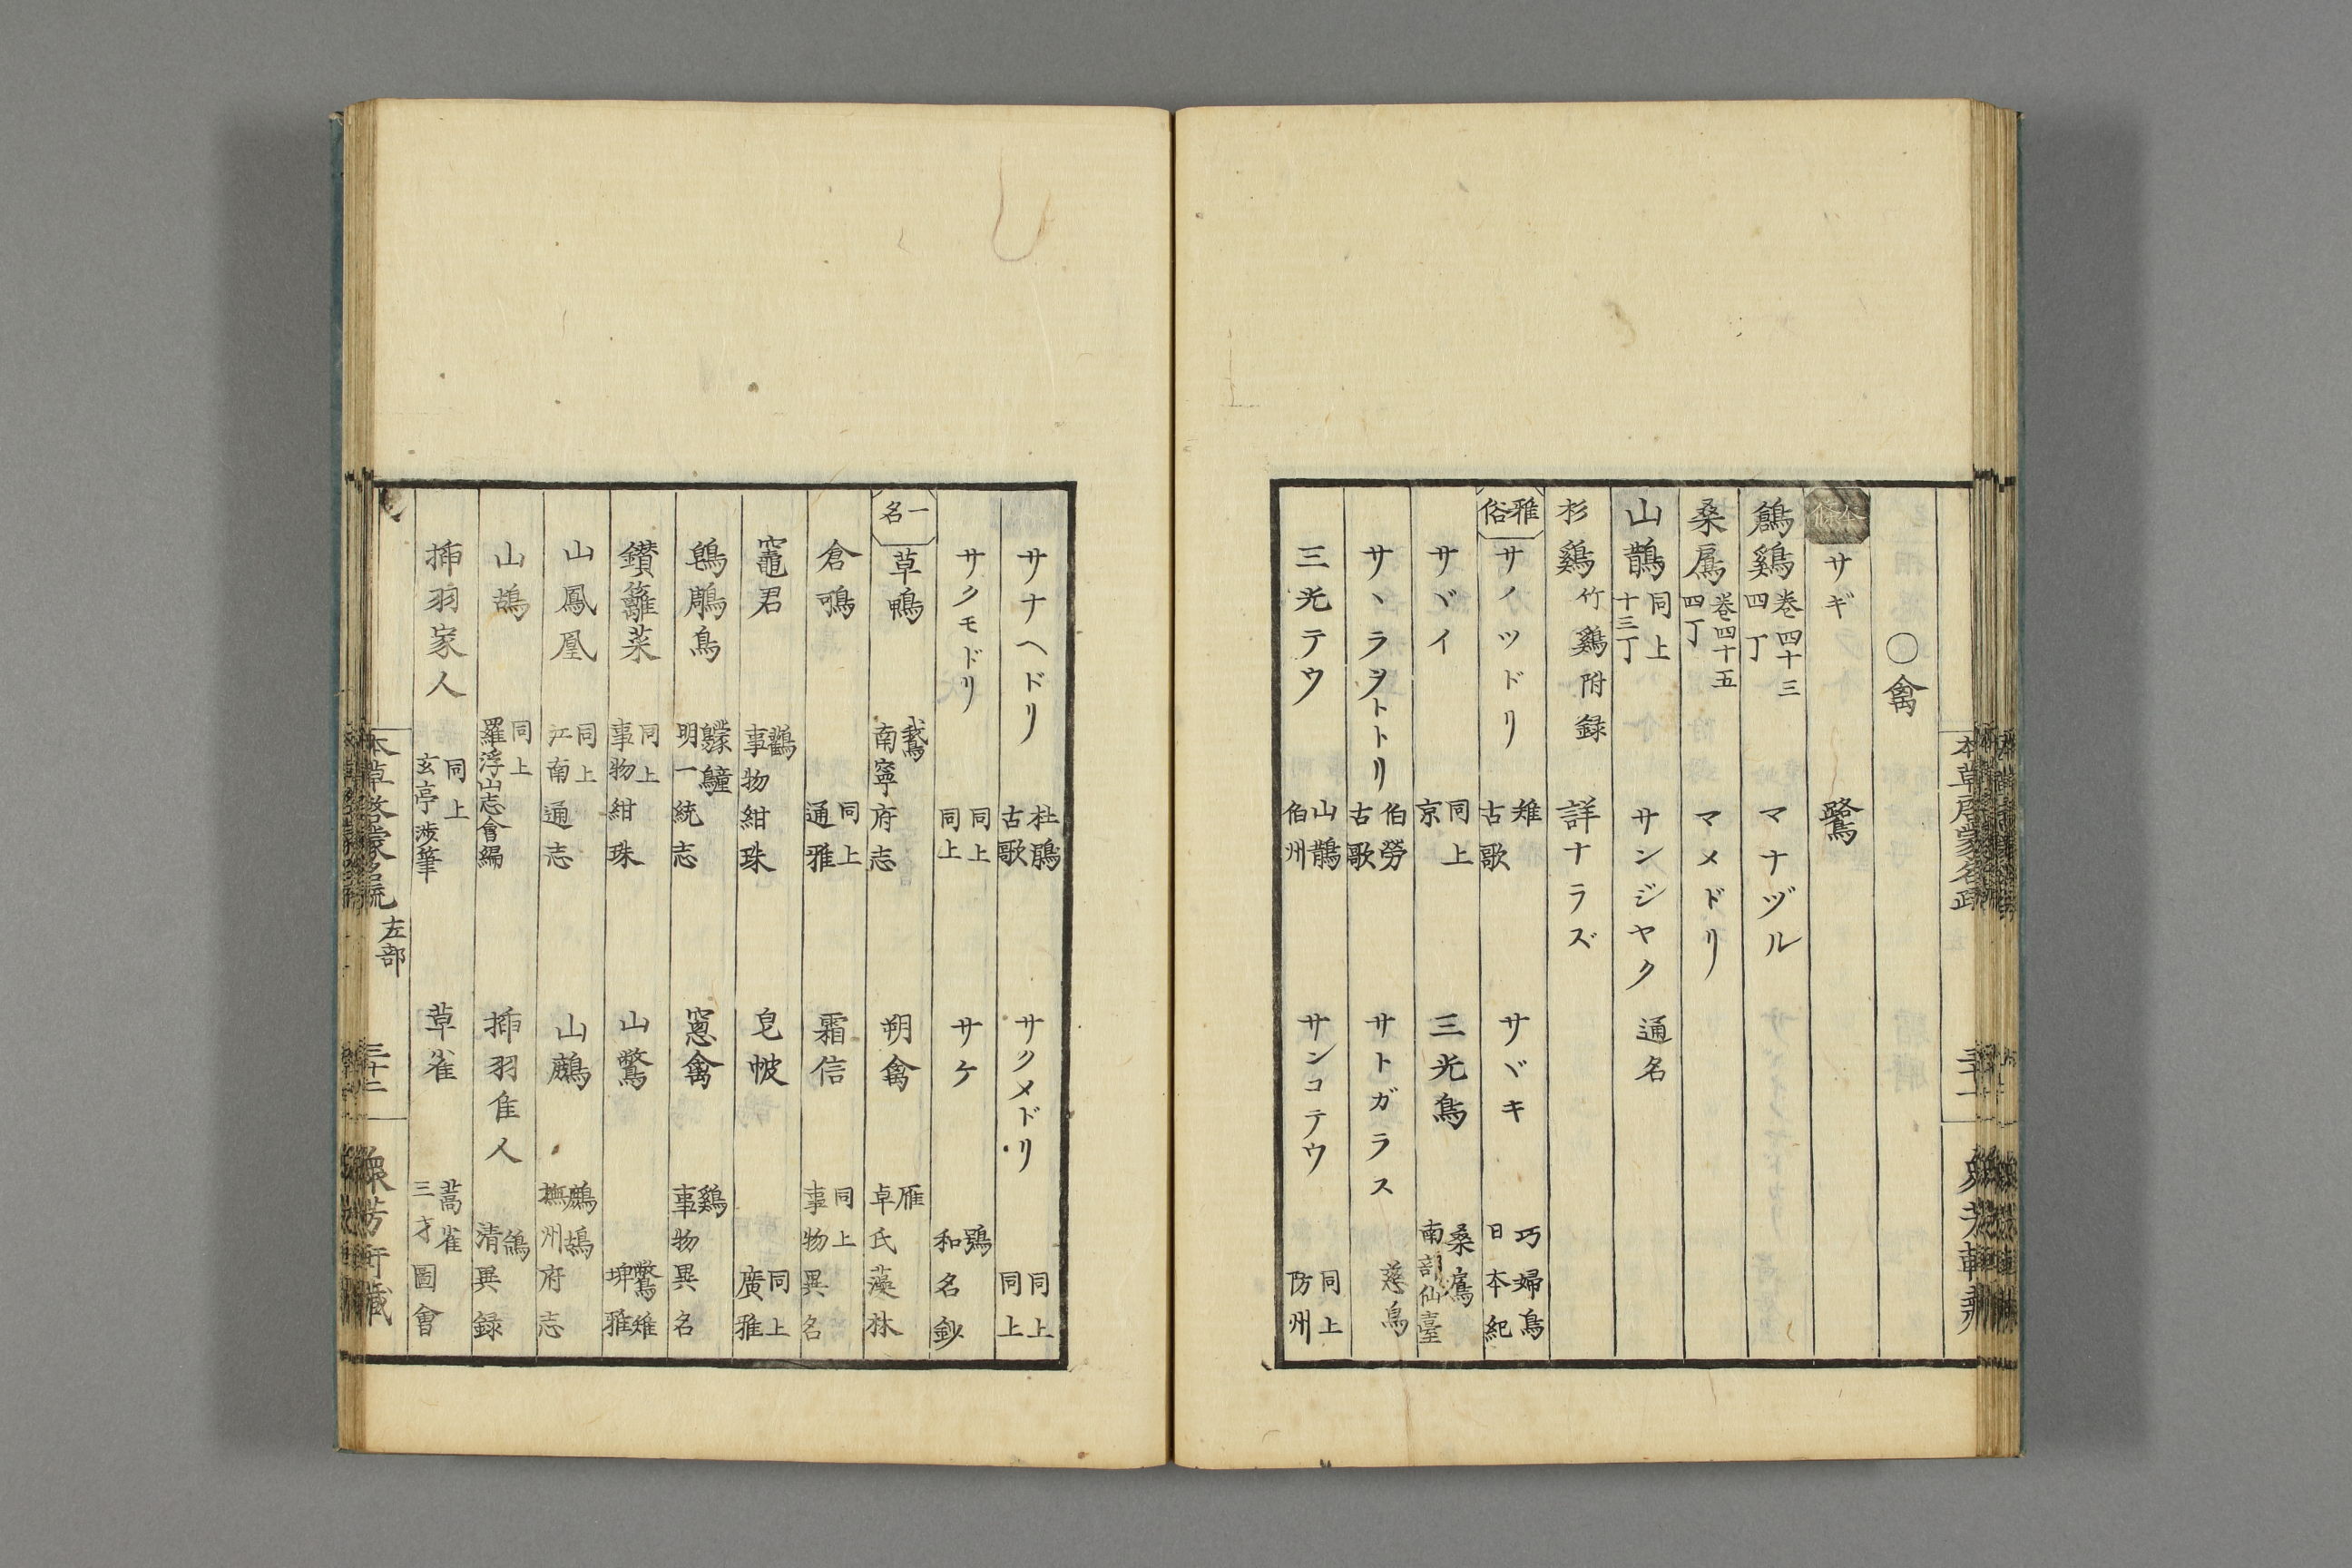 ○禽
本條 サギ 鷺
鶬鷄 巻四十三 四丁 マナヅル
桑鳸 巻四十五 四丁 マメドリ
山鵲 同上 十三丁 サンジヤク 通名
杉鷄 竹鷄附録 詳ナラズ
雅俗 サノツドリ 雉 古歌 サヾキ 巧婦鳥 日本紀
サヾイ 同上 京 三光鳥 桑鳸 南部仙臺
サヽラヲトトリ 伯勞 古歌 サトガラス 慈鳥
三光テウ 山鵲 伯州 サンコテウ 同上 防州
サナヘドリ 杜鵑 古歌 サクメドリ 同上 同上
サクモドリ 同上 同上 サケ 鴞 和名鈔
一名 草鴨 鵞 南寧府志 朔禽 雁 卓氏藻林
倉鳴 同上 通雅 霜信 同上 事物異名
竈君 鸛 事物紺珠 皂帔 同上 廣雅
鵯鵰鳥 鸏鷋 明一統志 窻禽 鷄 事物異名
鑚籬菜 同上 事物紺珠 山鷩 鷩雉 埤雅
山鳳凰 同上 江南通志 山鷓 鷓鴣 撫州府志
山鴣 同上 羅浮山志會編 插羽隹人 鴿 清異録
插羽家人 同上 玄亭渉筆 草雀 蒿雀 三才圖會
本草啓蒙名疏 左部 三十二 衆芳軒藏